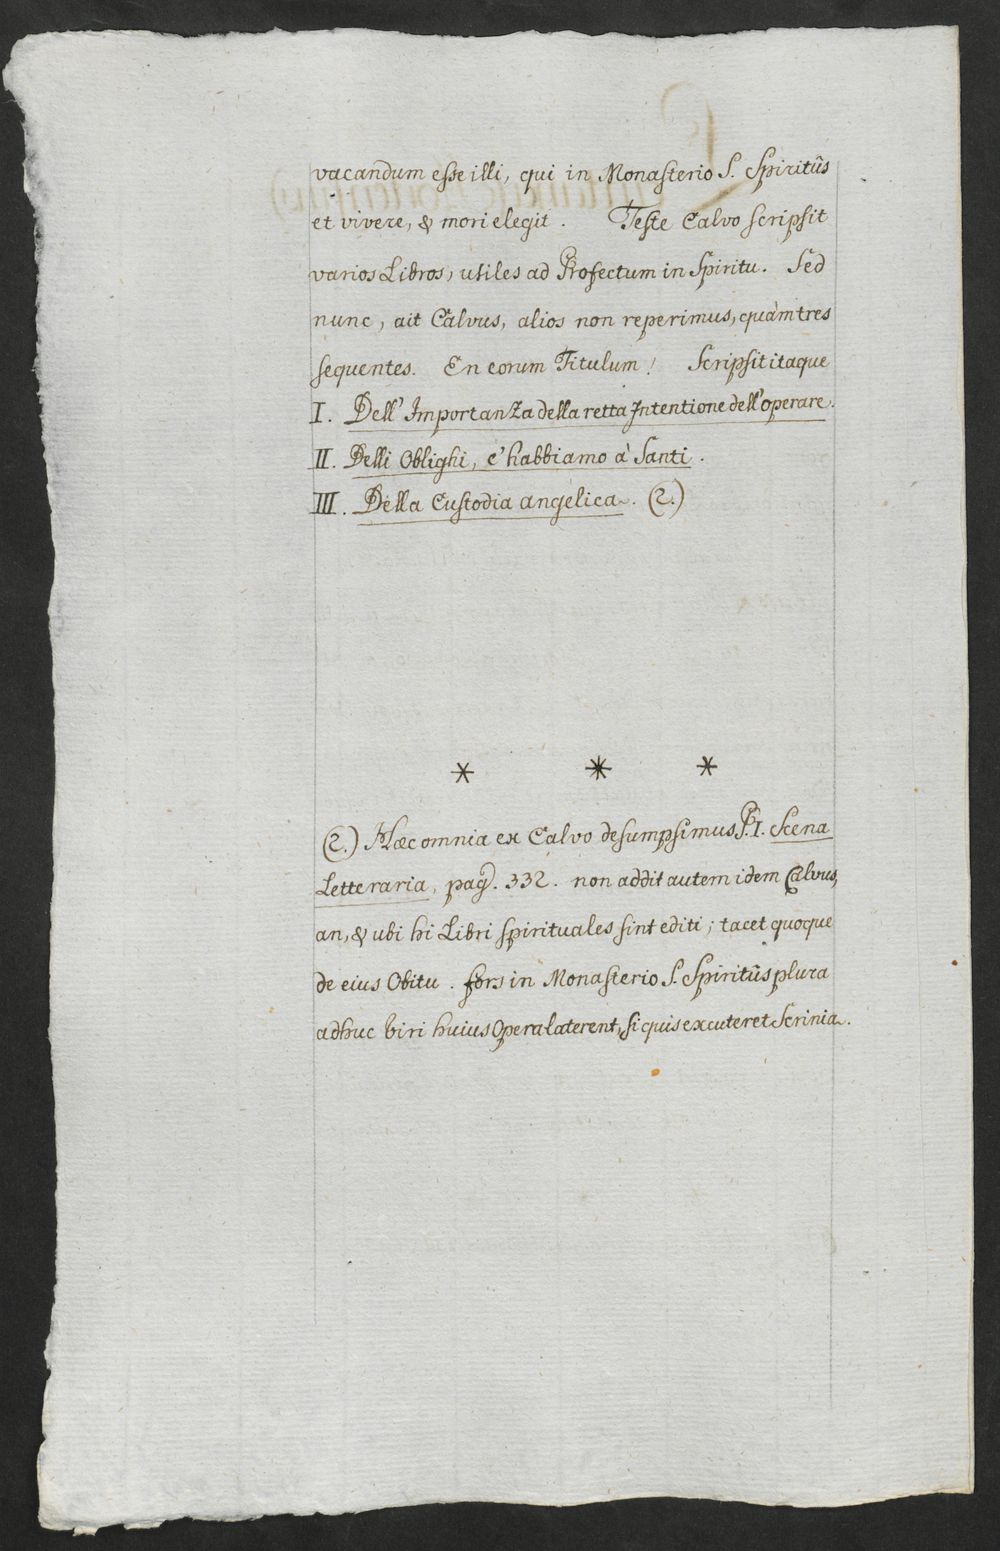 vacandum esse illi, qui in Monasterio S. Spiritûs
et vivere, & mori elegit. Teste Calvo scripsit
varios Libros, utiles ad Profectum in Spiritu. Sed
nunc, ait Calvus, alios non reperimus, quàm tres
sequentes. En eorum Titulum! Scripsit itaque
I. Dell' Importanza della retta Intentione dell' operare.
II. Delli Oblighi, c'habbiamo à Santi.
III. Della Custodia angelica. (2.)
* * *
(2.) Haec omnia ex Calvo desumpsimus P. I. Scena
Letteraria, pag. 332. non addit autem idem Calvus,
an, & ubi hi Libri spirituales sint editi; tacet quoque
de eius Obitu. fors in Monasterio S. Spiritûs plura
adhuc viri huius Opera laterent, si quis excuteret Scrinia.